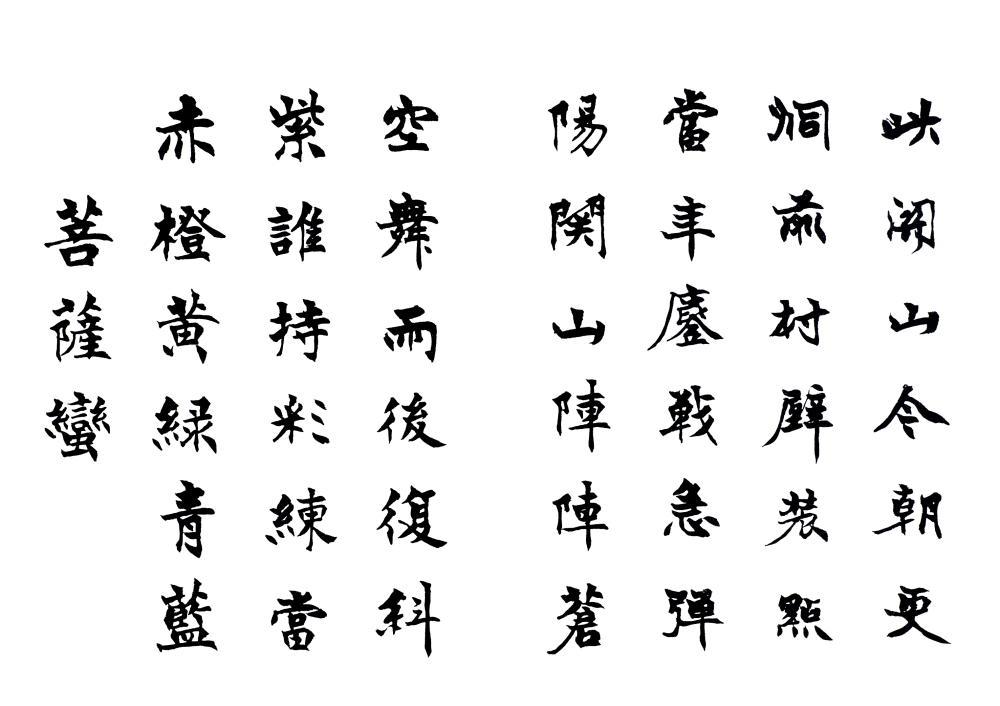 菩薩蠻
赤橙黄緑青藍
紫誰持彩練當
空舞雨後復斜
陽関山陣陣蒼
當年鏖戰急彈
洞前村壁裝點
此關山今朝更